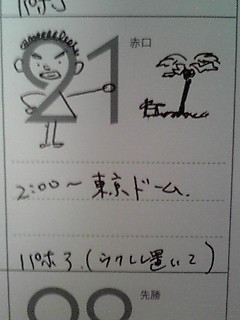 21 赤口
2:00〜 東京ドーム.
パホ3.(ラクレレ置いて)
先勝